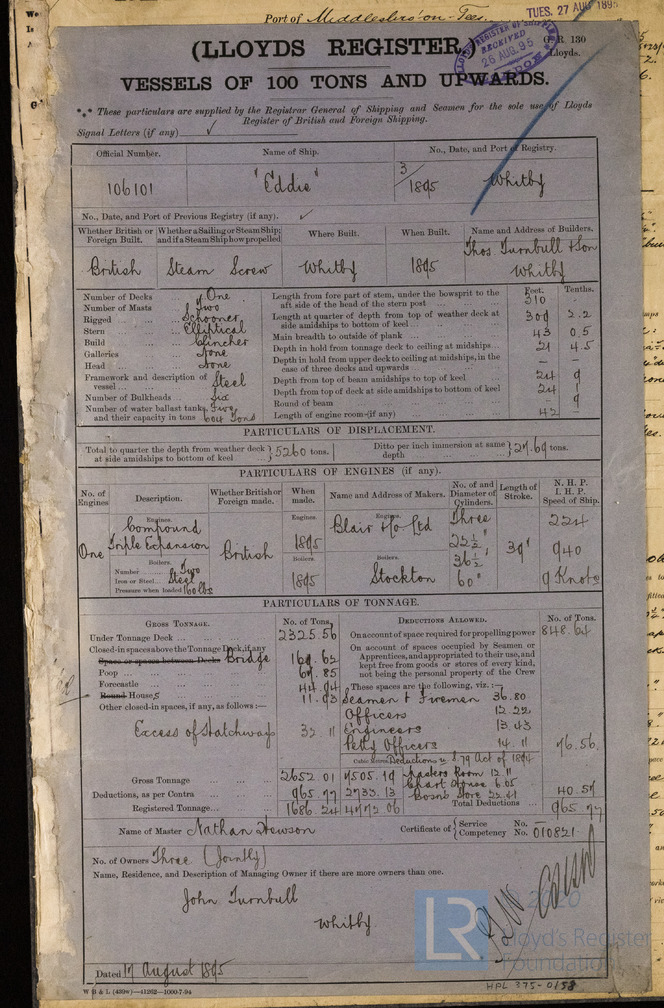 Port of Middlesbro'-on-Tees.
TUES. 27 AUG 1895
(LLOYDS REGISTER,)
RECEIVED
26 AUG. 95
G. R. 130
Lloyds.
VESSELS OF 100 TONS AND UPWARDS.
*** These particulars are supplied by the Registrar General of Shipping and Seamen for the sole use of Lloyds
Register of British and Foreign Shipping.
Signal Letters (if any) ✓
Official Number. Name of Ship. No., Date, and Port of Registry.
106101 "Eddie" 3/1895 Whitby
No., Date, and Port of Previous Registry (if any). ✓
Whether British or Foreign Built. Whether a Sailing or Steam Ship; and if a Steam Ship how propelled Where Built. When Built. Name and Address of Builders.
British Steam Screw Whitby 1895 Thos. Turnbull & Son Whitby
Number of Decks ... One
Number of Masts ... Two
Rigged ... Schooner
Stern ... Elliptical
Build ... Clincher
Galleries ... None
Head ... None
Framework and description of vessel ... Steel
Number of Bulkheads ... Six
Number of water ballast tanks, Five
and their capacity in tons 604 Tons
Feet. Tenths.
Length from fore part of stem, under the bowsprit to the aft side of the head of the stern post ... 310 -
Length at quarter of depth from top of weather deck at side amidships to bottom of keel ... 309 2.2
Main breadth to outside of plank ... 43 0.5
Depth in hold from tonnage deck to ceiling at midships ... 21 4.5
Depth in hold from upper deck to ceiling at midships, in the case of three decks and upwards ... - -
Depth from top of beam amidships to top of keel ... 24 9
Depth from top of deck at side amidships to bottom of keel 24 1
Round of beam ... 9
Length of engine room (if any) ... 42 -
PARTICULARS OF DISPLACEMENT.
Total to quarter the depth from weather deck at side amidships to bottom of keel } 5260 tons. Ditto per inch immersion at same depth } 27.69 tons.
PARTICULARS OF ENGINES (if any).
No. of Engines Description. Whether British or Foreign made. When made. Name and Address of Makers. No. of and Diameter of Cylinders. Length of Stroke. N. H. P. I. H. P. Speed of Ship.
Engines. Engines. Engines.
One Compound Triple Expansion British 1895 Blair & Co Ltd Three 22½", 36½", 60" 39" 224
940
9 Knots
Boilers. Boilers. Boilers.
Number ... Two
Iron or Steel... Steel
Pressure when loaded 160 lbs
1895 Stockton
PARTICULARS OF TONNAGE.
GROSS TONNAGE. No. of Tons. DEDUCTIONS ALLOWED. No. of Tons.
Under Tonnage Deck ... 2325.56
Closed-in spaces above the Tonnage Deck, if any
Space or spaces between Decks Bridge
Poop ... 67.85
Forecastle ... 44.94
Round Houses 11.93
Other closed-in spaces, if any, as follows:—
Excess of Hatchways 32 11
On account of space required for propelling power 848.64
On account of spaces occupied by Seamen or Apprentices, and appropriated to their use, and kept free from goods or stores of every kind, not being the personal property of the Crew
These spaces are the following, viz.:—
Seamen & Firemen 36.80
Officers 12.22
Engineers 13.43
Petty Officers 14.11
76.56
Deductions u. S. 79 Act of 1894
Masters Room 12.11
Chart House 6.05
Bosns Store 22.41
40.57
Gross Tonnage ... 2652 01 7505.19
Deductions, as per Contra ... 965.77 2733.13
Registered Tonnage... 1686.24 4772 06
Total Deductions ... 965 77
Name of Master Nathan Hewson Certificate of { Service No. —
Competency No. 010821
No. of Owners Three (Jointly)
Name, Residence, and Description of Managing Owner if there are more owners than one.
John Turnbull
Whitby
Dated 17 August 1895
W B & L (439w)—41262—1000-7-94
LR
2020
Lloyd's Register
Foundation
HPL 375-0153